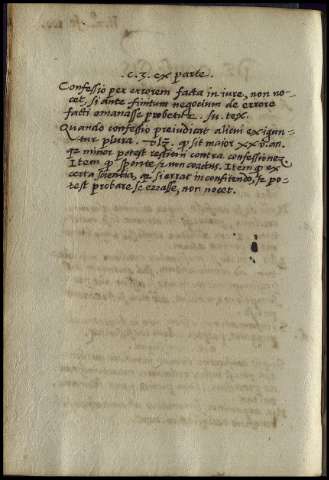 .c. 3. ex parte.
Confessio per errorem facta in iure, non no-
cet, si ante finitum negocium de errore
facti emanasse probetur. su. tex.
Quando confessio preiudicat alicui exiqun-
tur plura. sit maior xx v. an.
minor potest restitui contra confessionem
Item sponte, non coactus. Item ex
certa scientia, si errat in confitendo, po-
test probare se errasse, non nocet.